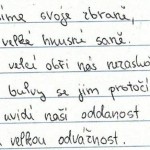 íme svoje zbraně,
velké hnusné saně.
velcí obři nás neraslu
bulvy se jim protočí
uvidí naši oddanost
velkou odvážnost.